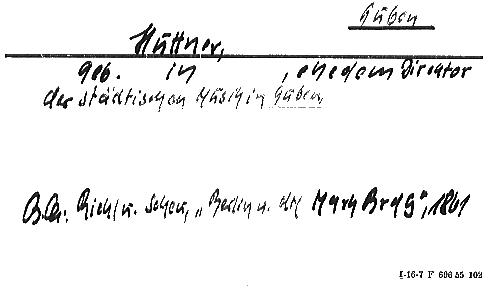 Guben
Hüttner,
geb. in , ehedem Direktor
der städtischen Musik in Guben,
B.Qu.: u. "Berlin u. die Mark Brdg", 1861
I-16-7 F 696 55 102